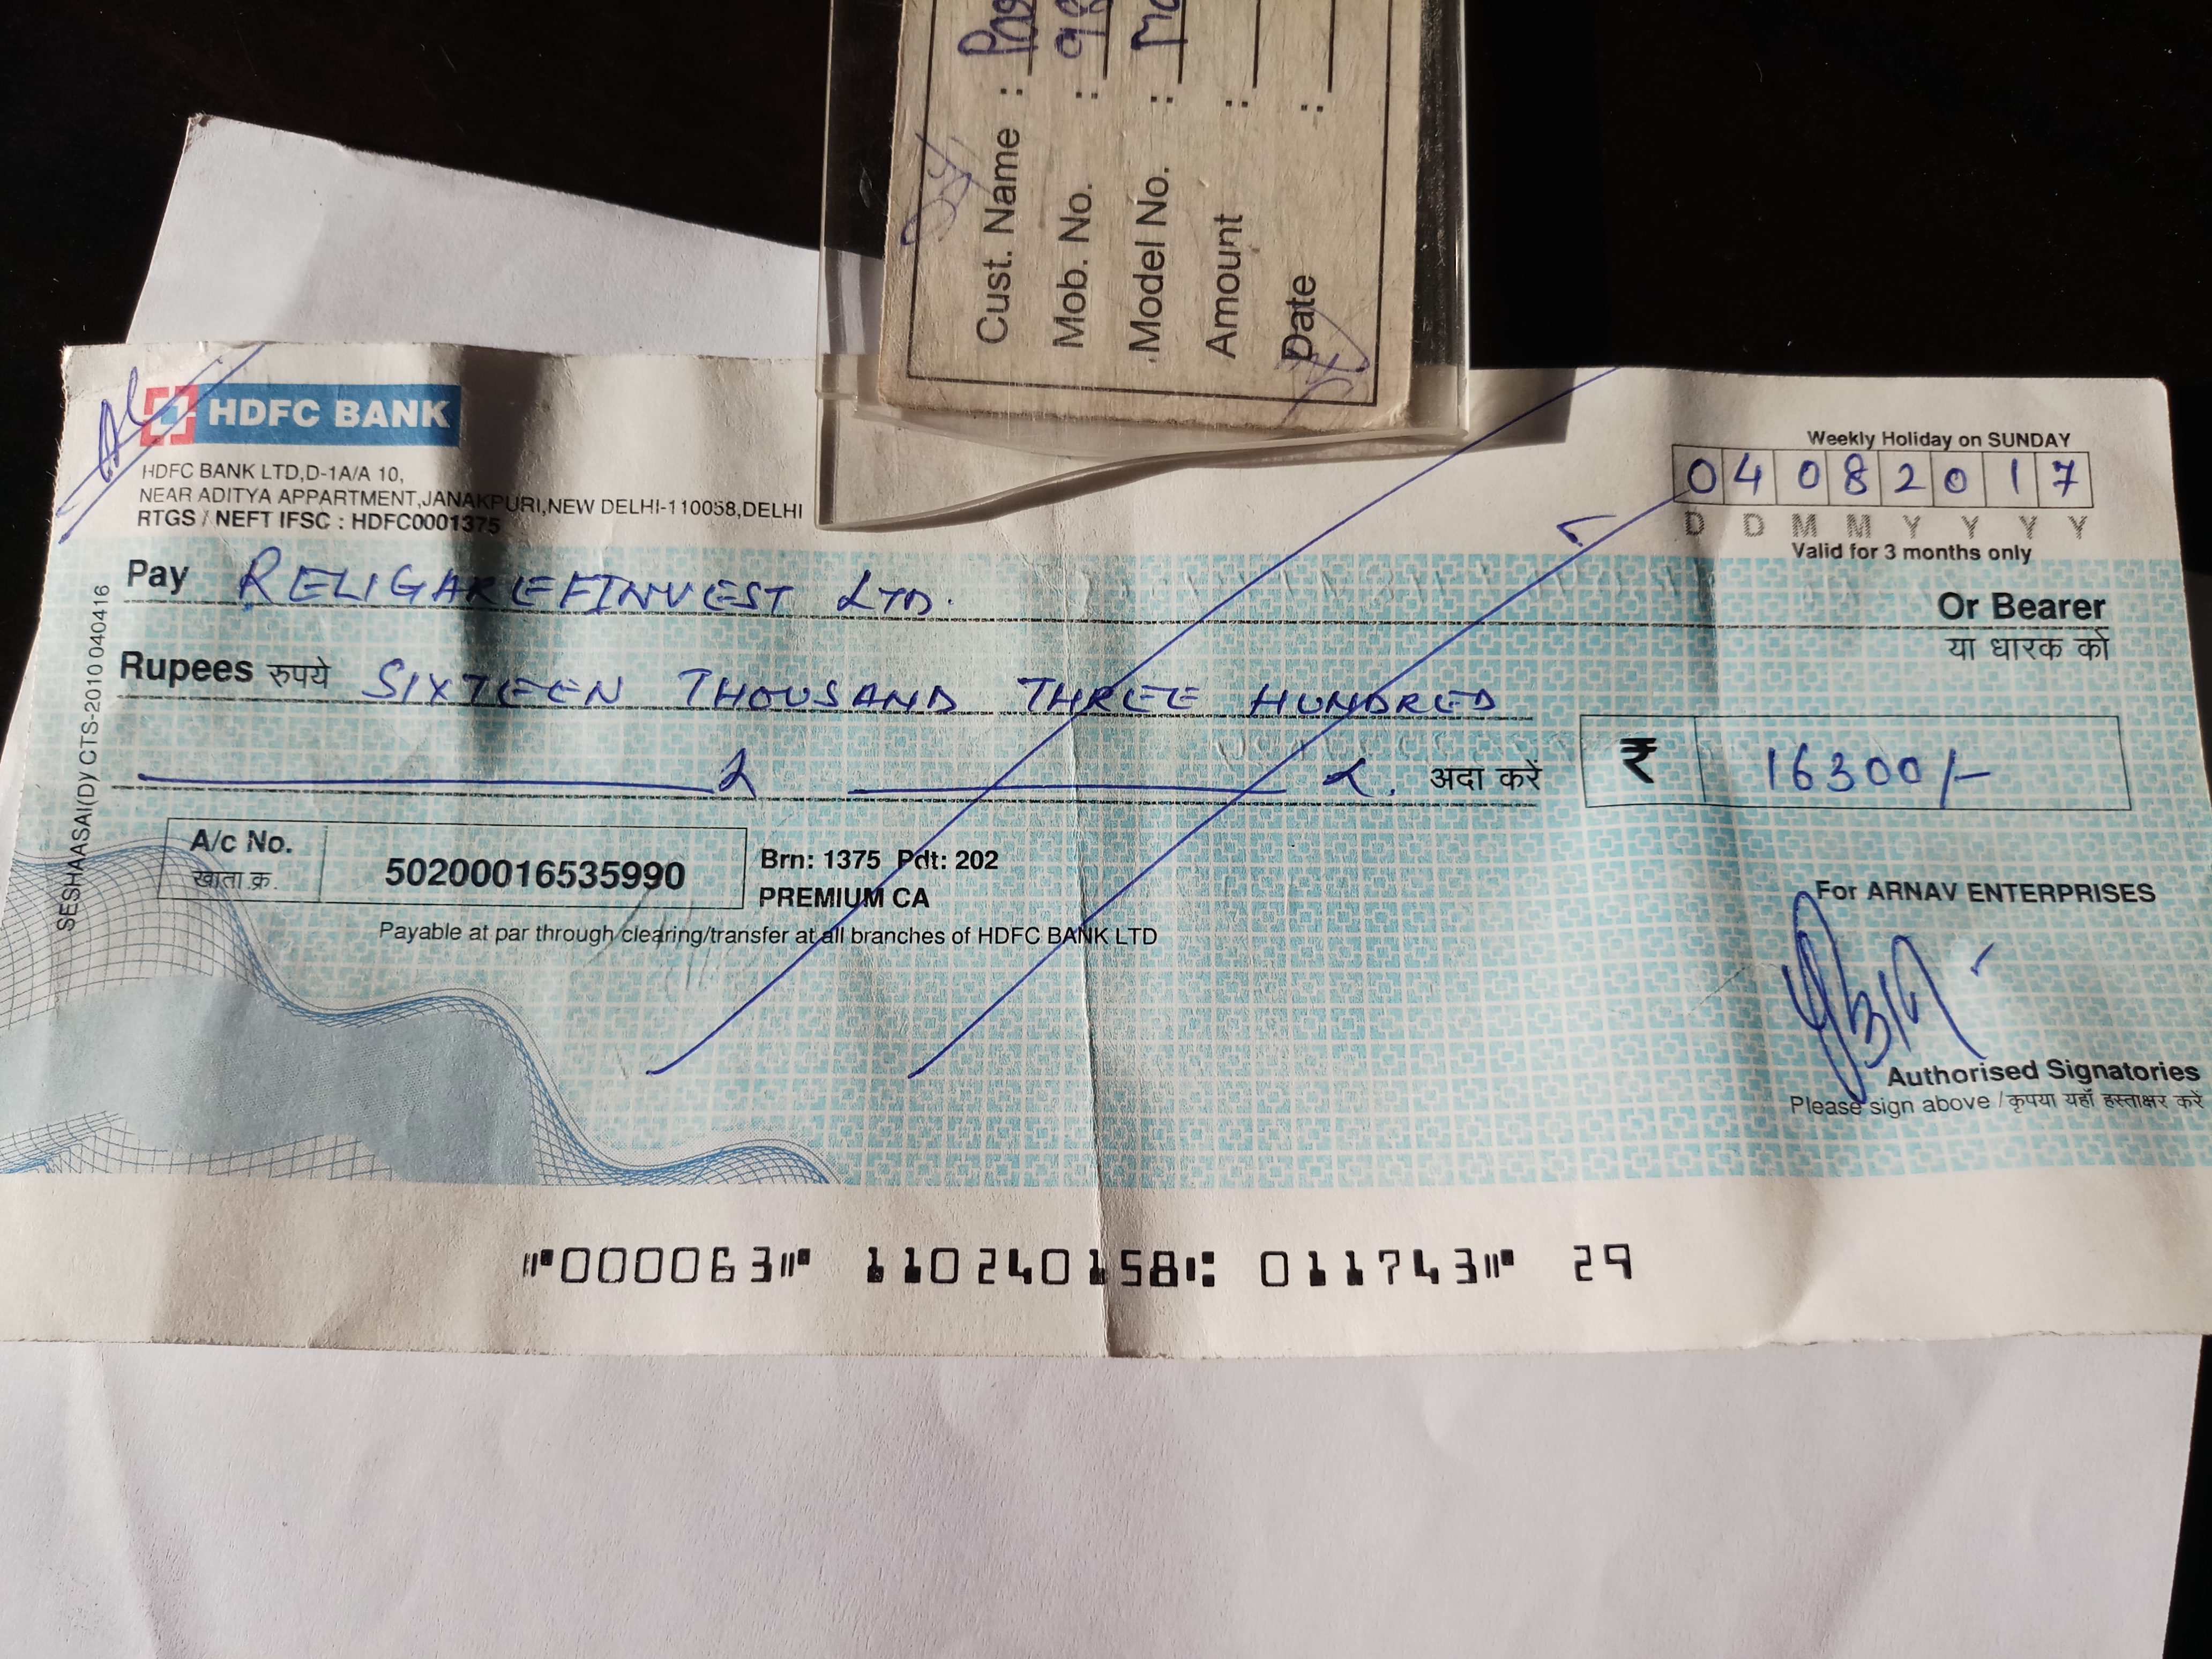 HDFC BANK
HDFC BANK LTD,D-1A/A 10,
NEAR ADITYA APPARTMENT,JANAKPURI,NEW DELHI-110058,DELHI
RTGS / NEFT IFSC : HDFC0001375
Weekly Holiday on SUNDAY
04082017
D D M M Y Y Y Y
Valid for 3 months only
Pay RELIGARE FINVEST LTD. Or Bearer
या धारक को
Rupees रुपये SIXTEEN THOUSAND THREE HUNDRED
अदा करें ₹ 16300/-
A/c No. 50200016535990
खाता क्र.
Brn: 1375 Pdt: 202
PREMIUM CA
For ARNAV ENTERPRISES
Payable at par through clearing/transfer at all branches of HDFC BANK LTD
Authorised Signatories
Please sign above / कृपया यहाँ हस्ताक्षर करें
"000063" 110240158: 011743" 29
SESHAASAI(D) CTS-2010 040416
Cust. Name :
Mob. No. :
Model No. :
Amount :
Date :